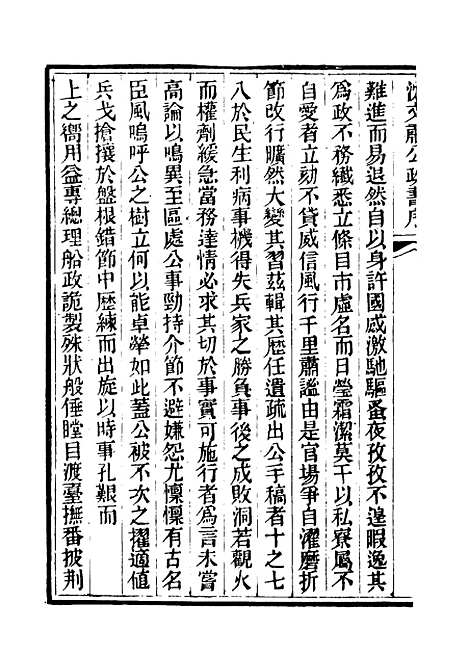 沈文肅公政書序
難進而易退然自以身許國感激馳驅蚤夜孜孜不遑暇逸其
爲政不務纖悉立條目市虛名而日瑩霜潔莫干以私寮屬不
自愛者立劾不貸威信風行千里肅謐由是官場爭自濯磨折
節改行曠然大變其習茲輯其歷任遺疏出公手稿者十之七
八於民生利病事機得失兵家之勝負事後之成敗洞若觀火
而權劑緩急當務達情必求其切於事實可施行者爲言未嘗
高論以鳴異至區處公事勁持介節不避嫌怨尤懍懍有古名
臣風嗚呼公之樹立何以能卓犖如此蓋公被不次之擢適値
兵戈搶攘於盤根錯節中歷練而出旋以時事孔艱而
上之嚮用益專總理船政詭製殊狀般倕瞠目渡臺撫番披荆